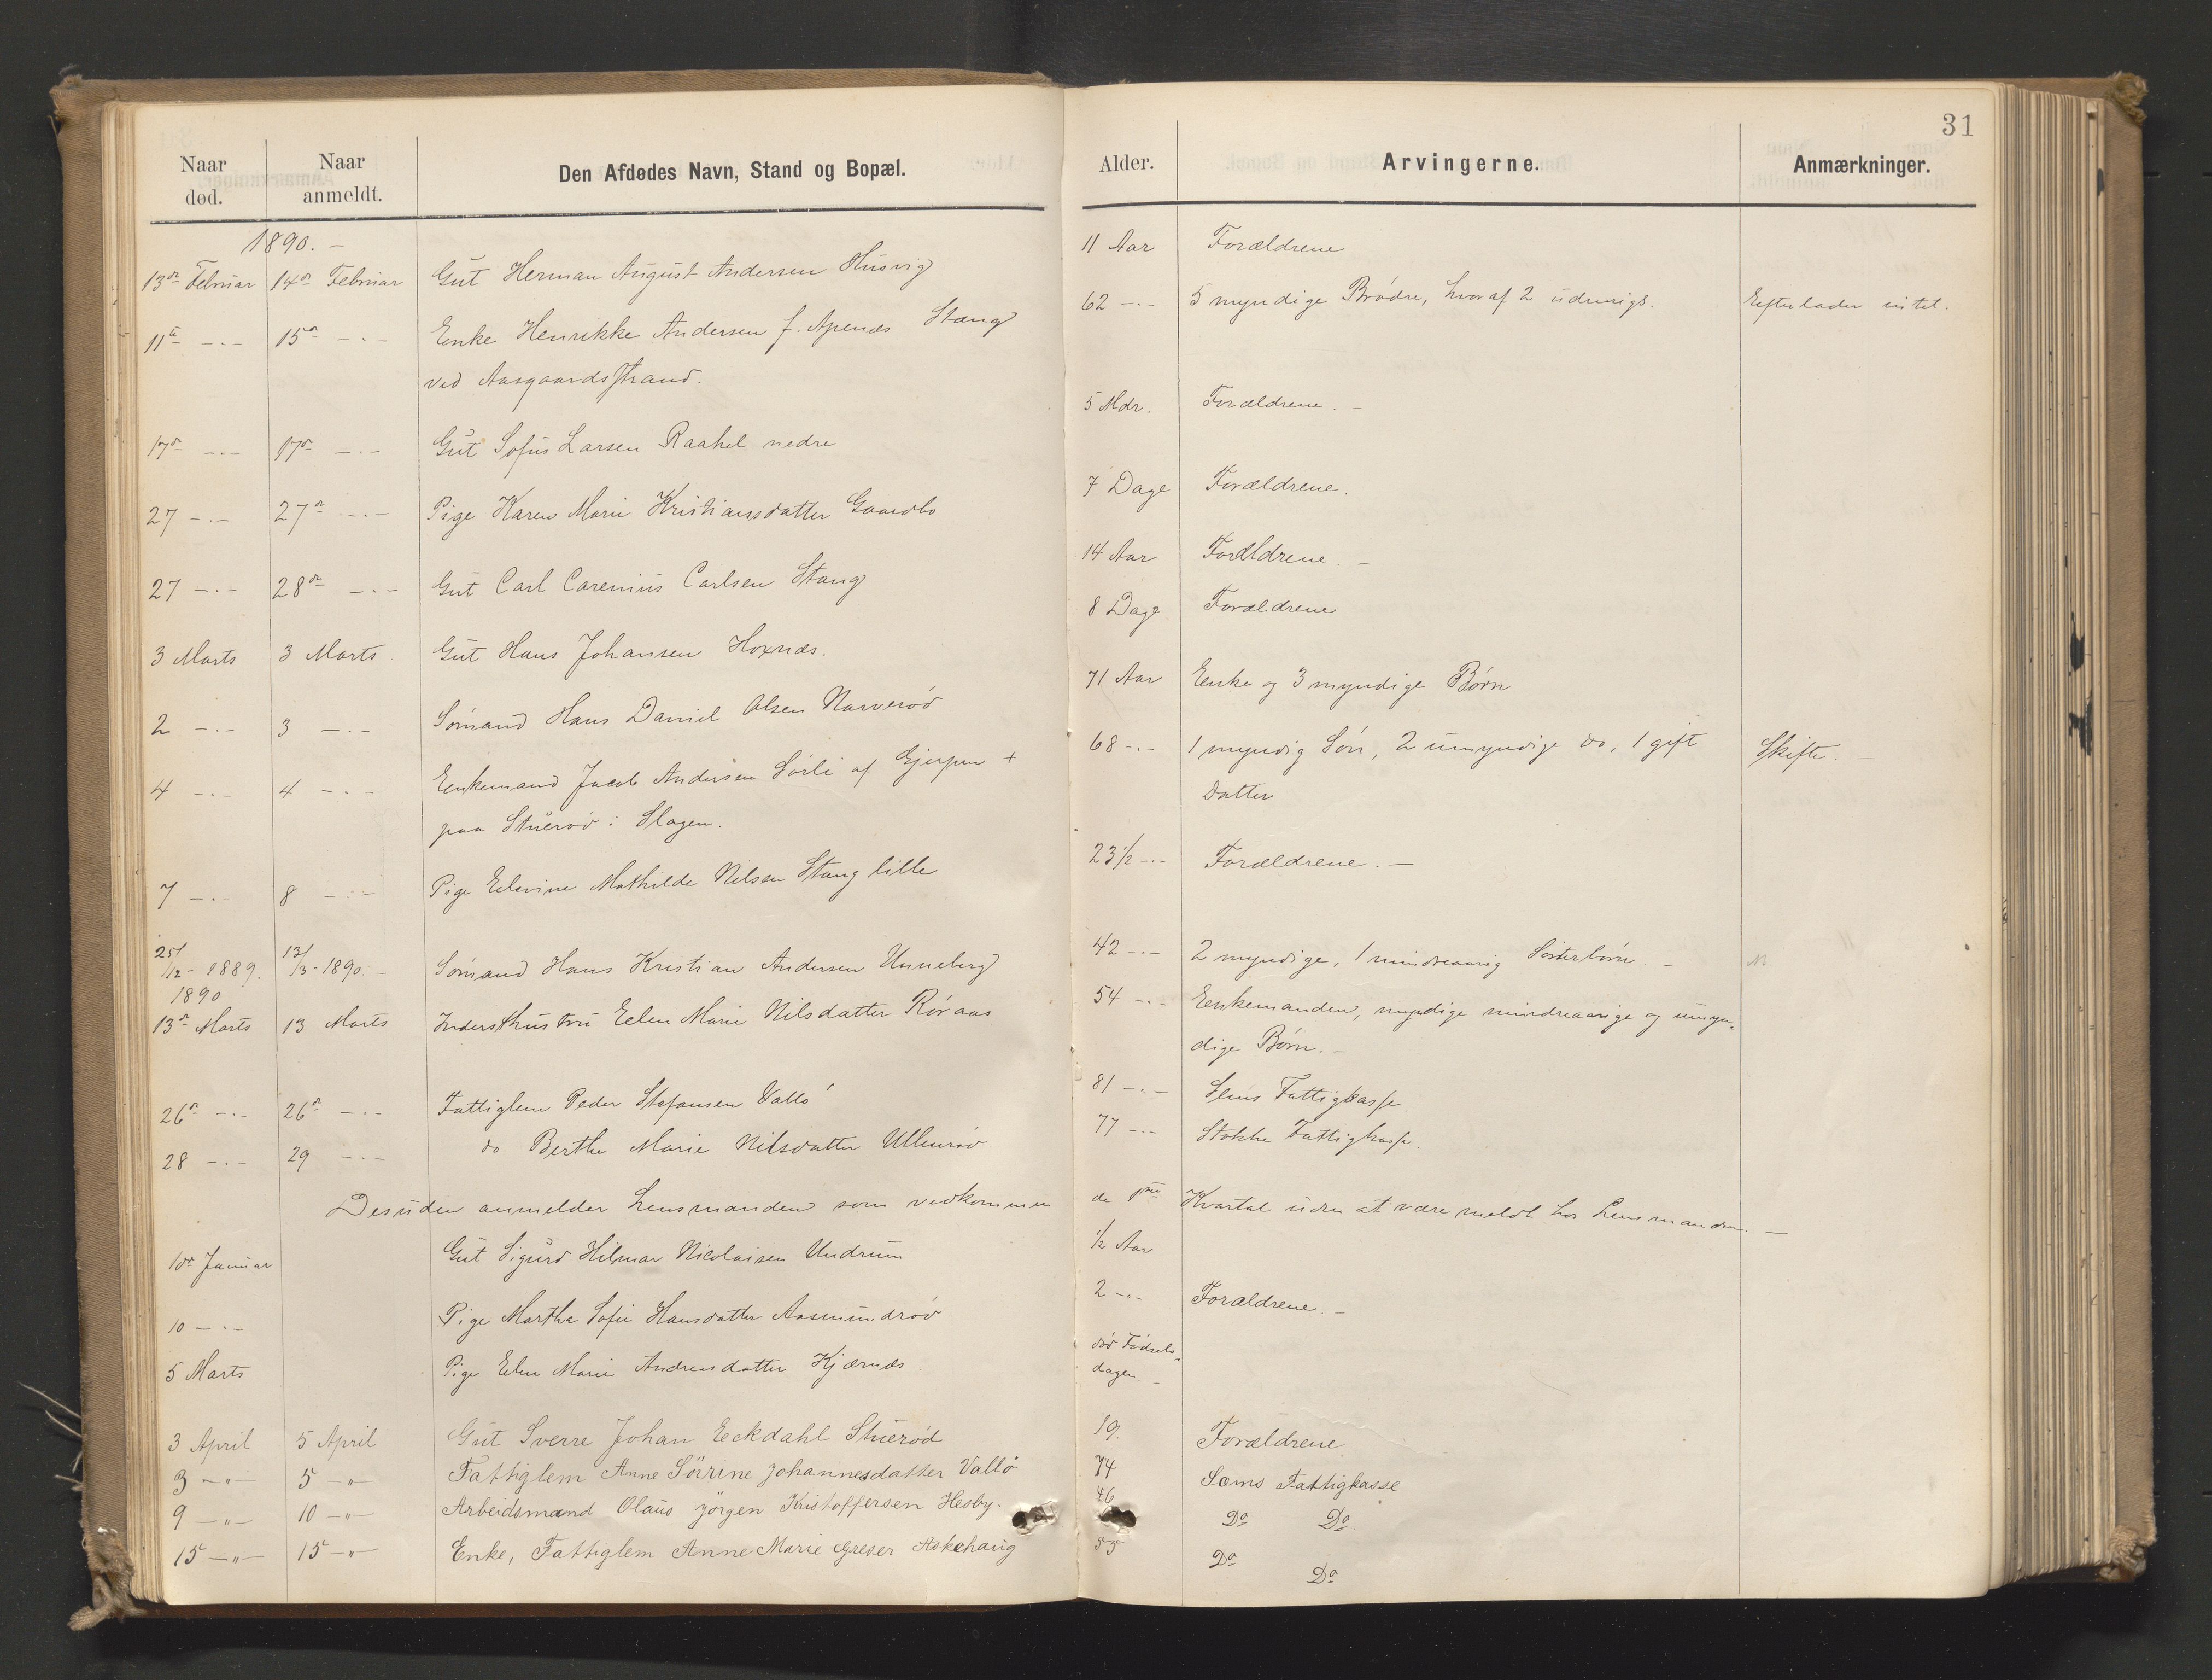 31
Naar død. Naar anmeldt. Den Afdødes Navn, Stand og Bopæl. Alder. Arvingerne. Anmærkninger.
1890.-
13de Februar 14de Februar Gut Herman August Andersen Husvig 11 Aar Forældrene
11te -.- 15de -.- Enke Henrikke Andersen f. Apenæs Stang 62 -.- 5 myndige Brødre, hvoraf 2 udenrigs. Efterlader intet.
ved Aasgaardsstrand.
17de -.- 17de -.- Gut Sofus Larsen Raahel nedre 5 Mdr. Forældrene.-
27 -.- 27de -.- Pige Karen Marie Kristiansdatter 7 Dage Forældrene.
27 -.- 28de -.- Gut Carl Carenius Carlsen Stang 14 Aar Forældrene.-
3 Marts 3 Marts Gut Hans Johansen Hoxnæs. 8 Dage Forældrene
2 -.- 3 -.- Sømand Hans Daniel Olsen Narverød 71 Aar Enke og 3 myndige Børn
4 -.- 4 -.- Enkemand Jacob Andersen Sørli af Gjerpen + 68 -.- 1 myndig Søn, 2 umyndige do, 1 gift Skifte.-
paa Stuerød i Slagen. Datter
7 -.- 8 -.- Pige Edvine Mathilde Nilsen Stang lille 23½ -.- Forældrene.-
25/12 - 1889. 13/3 - 1890.- Sømand Hans Kristian Andersen Unneberg 42 -.- 2 myndige, 1 mindreaarig Søsterbørn.-
1890
13de Marts 13 Marts Indersthustru Elen Marie Nilsdatter Røraas 54 -.- Enkemanden, myndige mindreaarige og umyn-
dige Børn.-
26de -.- 26de -.- Fattiglem Peder Stefansen Vallø 81 -.- Sems Fattigkasse
28 -.- 29 -.- do Berthe Marie Nilsdatter Ullenrød 77 -.- Stokke Fattigkasse.
Desuden anmelder Lensmanden som vedkommen de 1ste Kvartal uden at være meldt hos Lensmanden.-
10de Januar Gut Sigurd Hilmar Nicolaisen Undrum ½ Aar
10 -.- Pige Martha Sofie Hansdatter Aasmundrød 2 -.- Forældrene.-
5 Marts Pige Elen Marie Andreasdatter Kjærnæs. død Fødsels-
dagen.-
3 April 5 April Gut Sverre Johan Eckdahl Stuerød 19. Forældrene
3 -"- 5 -"- Fattiglem Anne Sørine Johannesdatter Vallø 74 Sems Fattigkasse
9 -"- 10 -"- Arbeidsmand Olaus Jørgen Kristoffersen Hesby. 46 Do Do.
15 -"- 15 -"- Enke, Fattiglem Anne Marie Grever Askehaug 55 Do Do